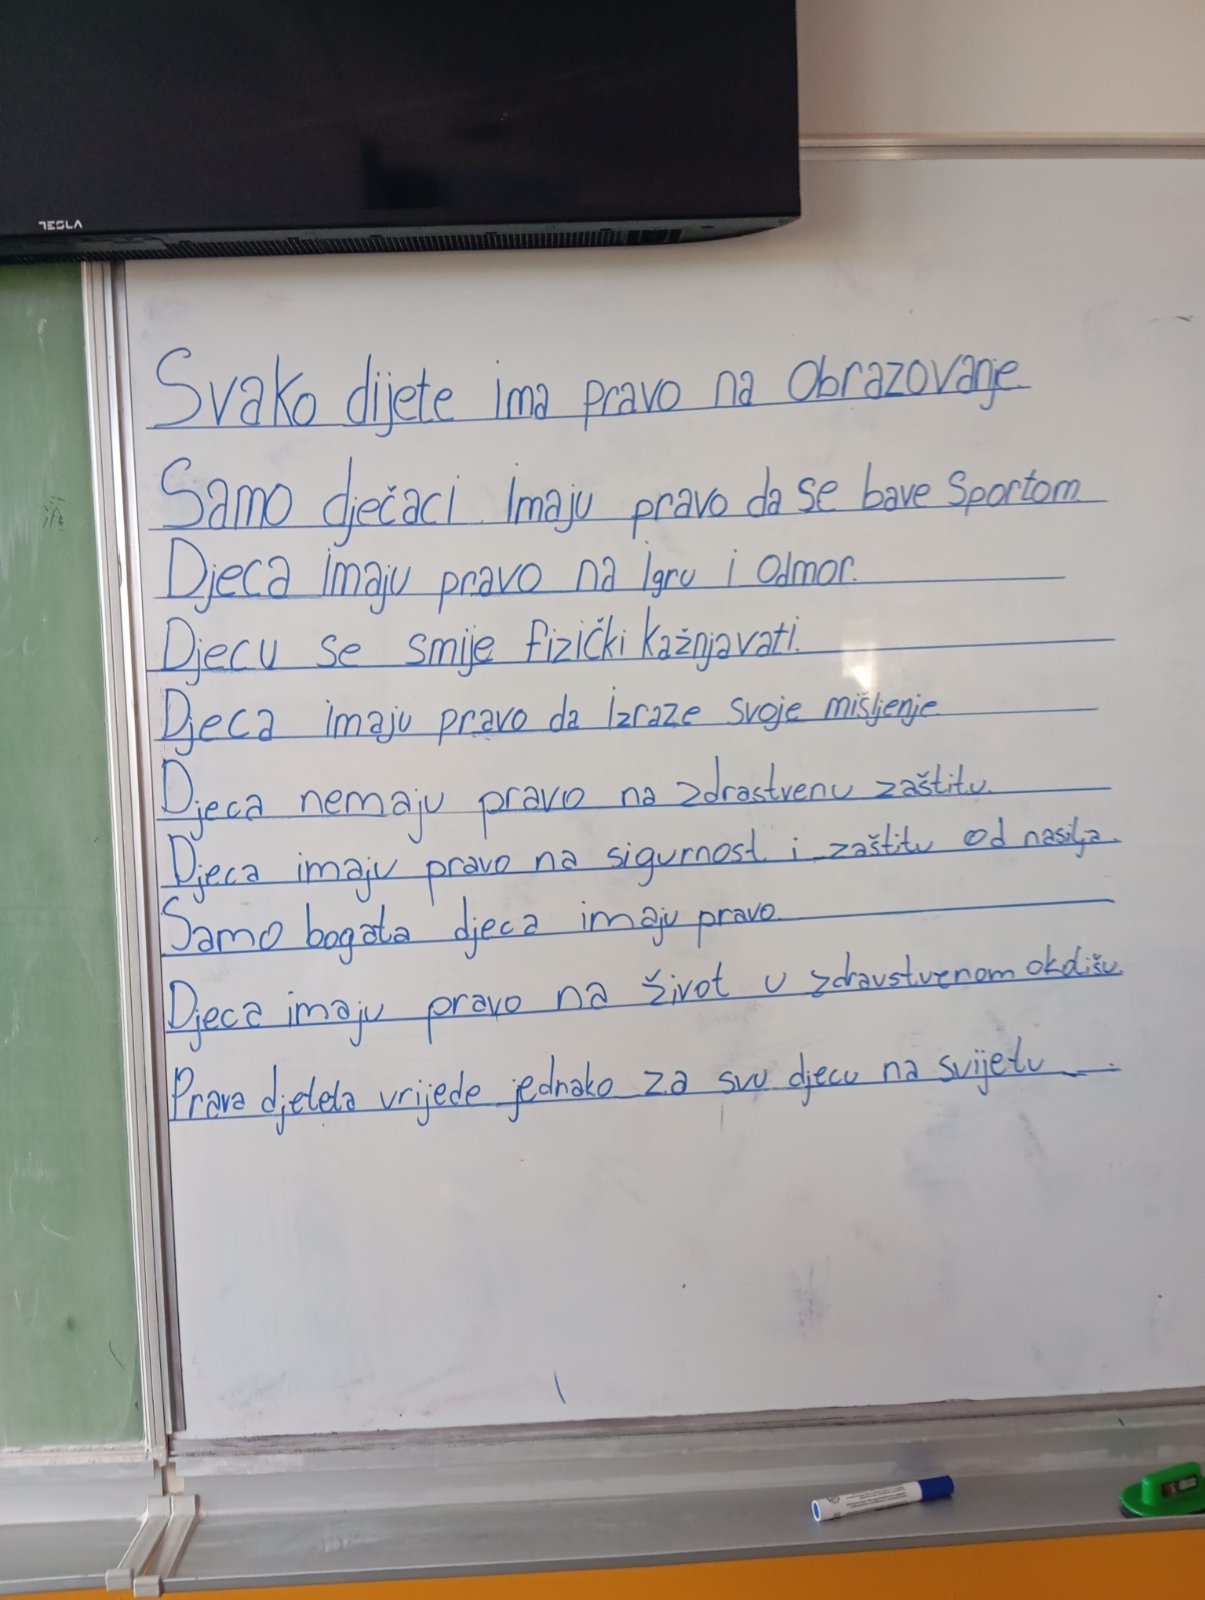 TESLA
Svako dijete ima pravo na Obrazovanje
Samo dječaci Imaju pravo da se bave Sportom
Djeca imaju pravo na igru i odmor.
Djecu se smije fizički kažnjavati.
Djeca imaju pravo da izraze svoje mišljenje
Djeca nemaju pravo na zdrastvenu zaštitu.
Djeca imaju pravo na sigurnost i zaštitu od nasilja.
Samo bogata djeca imaju pravo
Djeca imaju pravo na život u zdravstvenom okolišu.
Prava djeteta vrijede jednako za svu djecu na svijetu